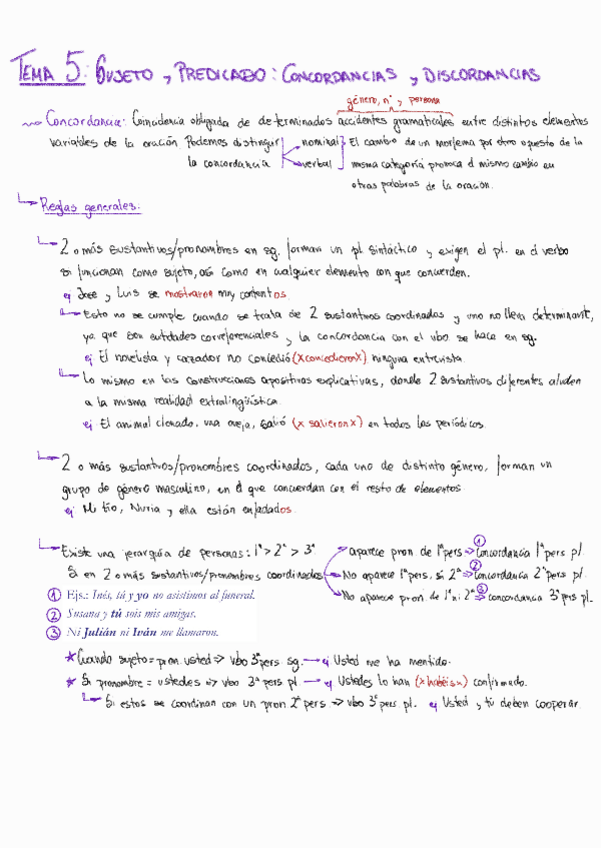 TEMA 5: SUJETO Y PREDICADO: CONCORDANCIAS Y DISCORDANCIAS
género, nº y persona
Concordancia: Coincidencia obligada de determinados accidentes gramaticales entre distintos elementos
variables de la oración. Podemos distinguir nominal El cambio de un morfema por otro opuesto de la
la concordancia verbal misma categoría provoca el mismo cambio en
otras palabras de la oración.
Reglas generales:
2 o más sustantivos/pronombres en sg. forman un pl sintáctico y exigen el pl. en el verbo
si funcionan como sujeto, así como en cualquier elemento con que concuerden.
ej Jose y Luis se mostraron muy contentos.
Esto no se cumple cuando se trata de 2 sustantivos coordinados y uno no lleva determinante,
ya que son entidades correferenciales y la concordancia con el vbo se hace en sg.
ej El novelista y cazador no concedió (x concedieron x) ninguna entrevista.
Lo mismo en las construcciones apositivas explicativas, donde 2 sustantivos diferentes aluden
a la misma realidad extralingüística.
ej El animal clonado, una oveja, salió (x salieron x) en todos los periódicos.
2 o más sustantivos/pronombres coordinados, cada uno de distinto género, forman un
grupo de género masculino, en el que concuerdan con el resto de elementos.
ej Mi tío, Nuria y ella están enfadados.
Existe una jerarquía de personas: 1ª > 2ª > 3ª aparece pron de 1ª pers => ① Concordancia 1ª pers pl.
Si en 2 o más sustantivos/pronombres coordinados No aparece 1ª pers, sí 2ª => ② concordancia 2ª pers pl.
No aparece pron. de 1ª ni 2ª => ③ concordancia 3ª pers pl.
① Ejs.: Inés, tú y yo no asistimos al funeral.
② Susana y tú sois mis amigas.
③ Ni Julián ni Iván me llamaron.
* Cuando sujeto = pron. usted => vbo 3ª pers sg. → ej Usted me ha mentido.
* Si pronombre = ustedes => vbo 3ª pers pl. → ej Ustedes lo han (x habéis x) confirmado.
Si estos se coordinan con un pron 2ª pers => vbo 3ª pers pl. ej Usted y tú deben cooperar.